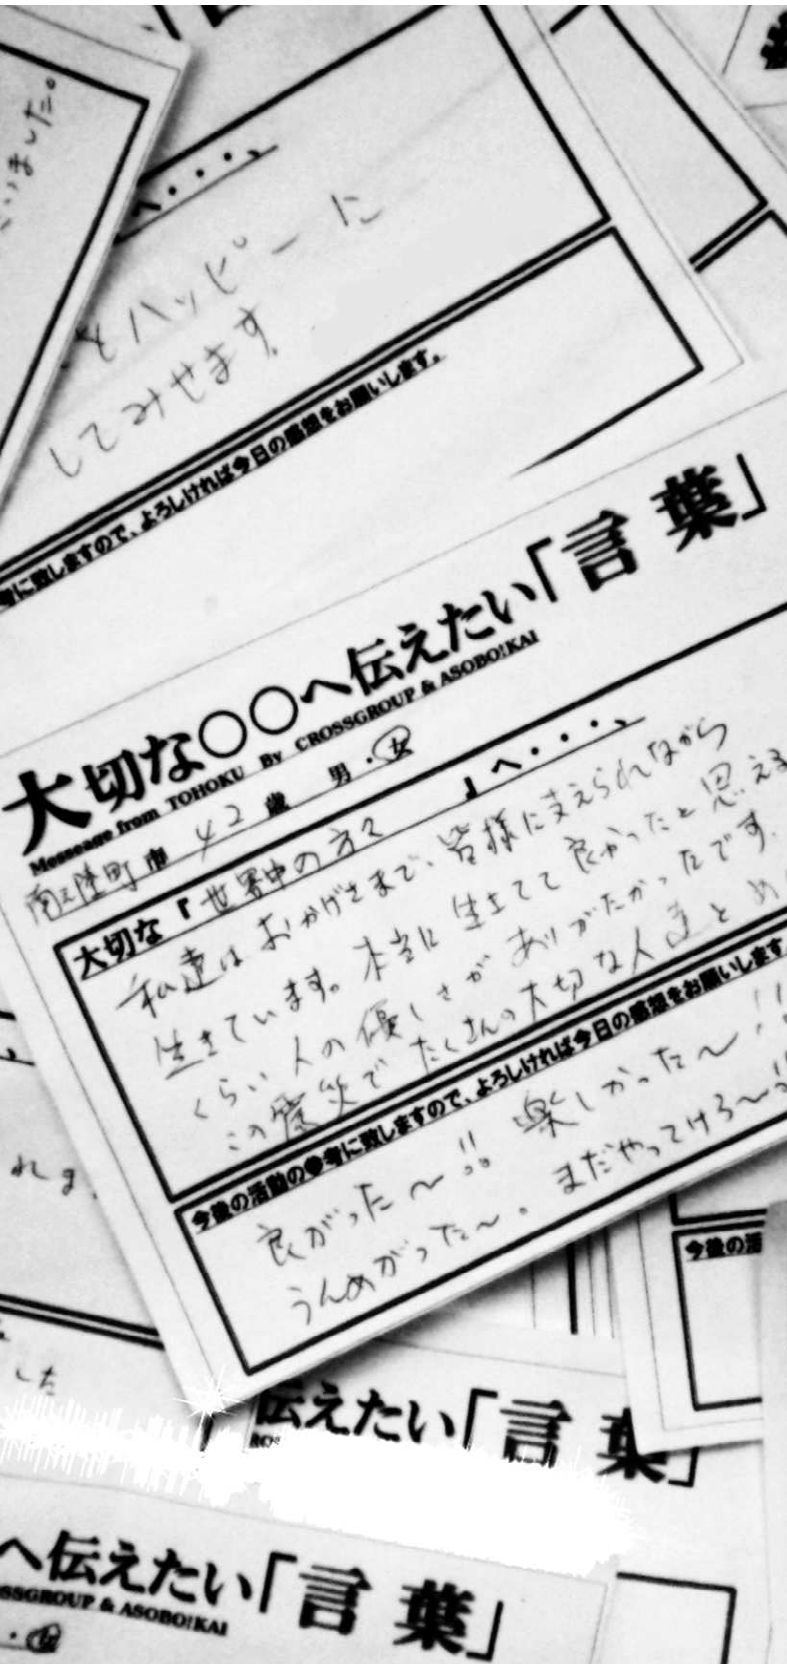 いました。
へ・・・、
をハッピーに
してみせます。
考に致しますので、よろしければ今日の感想をお願いします。
大切な○○へ伝えたい「言葉」
Messeage from TOHOKU By CROSSGROUP & ASOBO!KAI
南三陸町 市 42歳 男・女
大切な『世界中の方々 』へ・・・、
私達はおかげさまで、皆様に支えられながら
生きています。本当に生きてて良かったと思える
くらい人の優しさがありがたかったです。
この震災でたくさんの大切な人達とめ
今後の活動の参考に致しますので、よろしければ今日の感想をお願いします
良がった〜!! 楽しかった〜!!
うんめがった〜。まだやってけろ〜!!
れま
した
今後の活
伝えたい「言葉」
へ伝えたい「言葉」
SSGROUP & ASOBO!KAI
・女